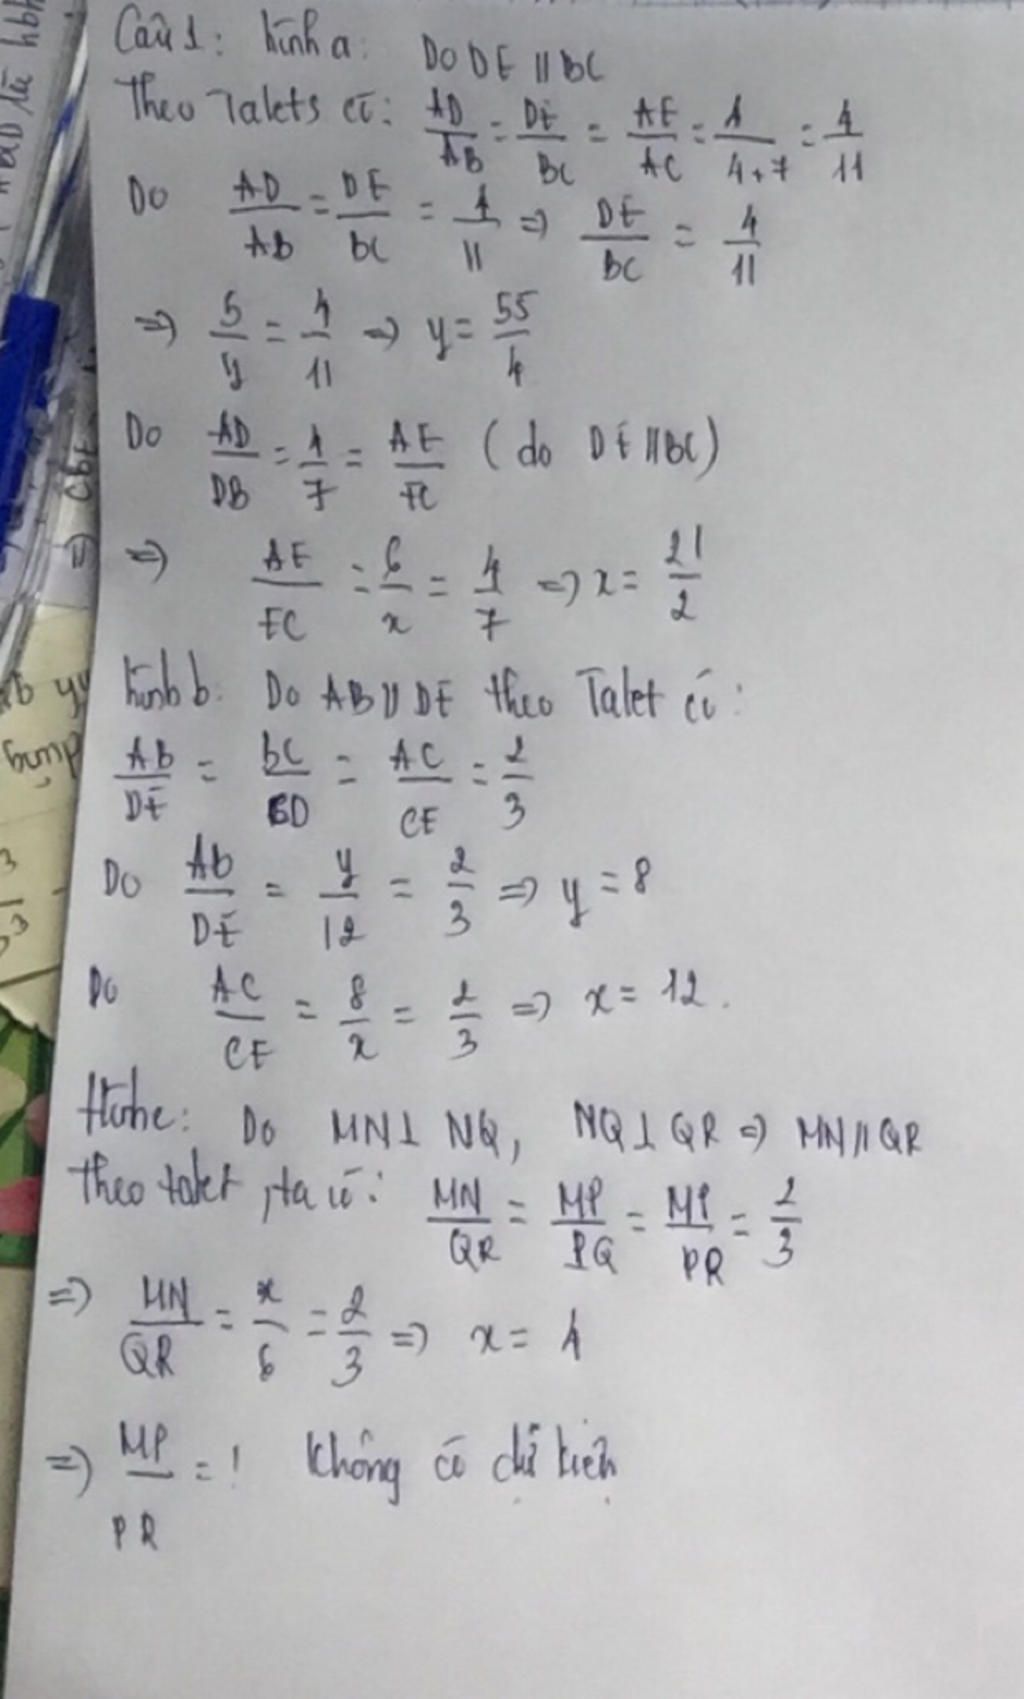 Câu 1: hình a: DO DE // BC
Theo Talets có: AD/AB = DE/BC = AE/AC = 4/4+7 = 4/11
Do AD/AB = DE/BC = 4/11 => DE/BC = 4/11
=> 5/y = 4/11 => y = 55/4
Do AD/DB = 4/7 = AE/EC (do DE // BC)
=> AE/EC = 6/x = 4/7 => x = 21/2
hình b: Do AB // DE theo Talet có:
AB/DE = BC/CD = AC/CE = 2/3
Do AB/DE = y/12 = 2/3 => y = 8
Do AC/CE = 8/x = 2/3 => x = 12.
Hình c: Do MN ⊥ NQ, NQ ⊥ QR => MN // QR
theo talet, ta có: MN/QR = MP/PQ = MP/PR = 2/3
=> MN/QR = x/6 = 2/3 => x = 4
=> MP/PR = ! Không có dữ kiện